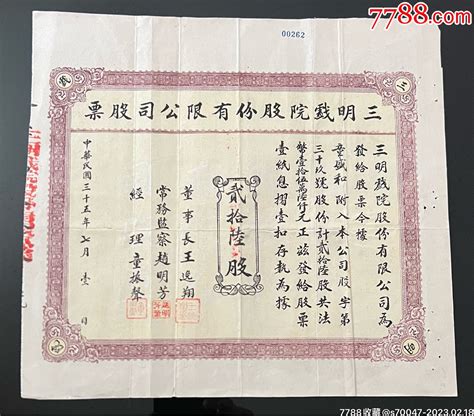 7788.com
00262
三明戲院股份有限公司股票
三明戲院股份有限公司為
發給股票今據
童城和附入本公司股字第
三十玖號股份計貳拾陸股共法
幣壹拾伍萬陸仟元正茲發給股票
壹紙息摺壹扣存執為據
貳拾陸股
董事長王逸翔
常務監察趙明芳
經理童振聲
中華民國三十五年七月壹日
7788收藏@s70047-2023.02.18